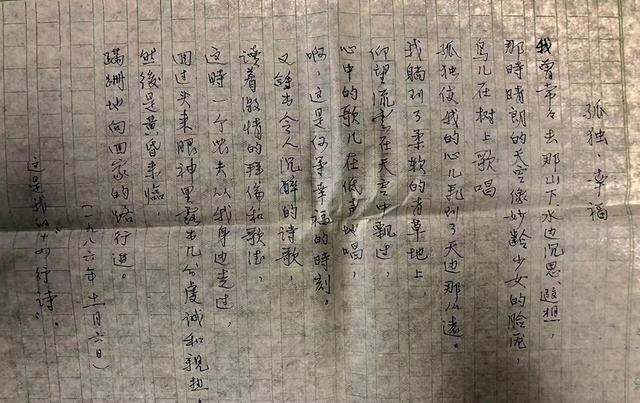 孤独·幸福
我曾常々去那山下、水边沉思、遐想，
那時晴朗的天空像妙龄少女的脸庞，
鸟儿在树上歌唱
孤独使我的心儿飞到了天边那么遠。
我躺到了柔软的青草地上，
仰望流云在天空中飘过，
心中的歌儿在低声地唱，
啊，这是何等幸福的時刻。
又諦出令人沉醉的诗歌
读着激情的拜倫和歌德，
这時一个农夫从我身边走过，
回过头来眼神里露出几分虔诚和親热。
然後是黄昏来臨，
蹒跚地向回家的路行进。
(一九八六年十一月六日)
这是我的十四行诗。